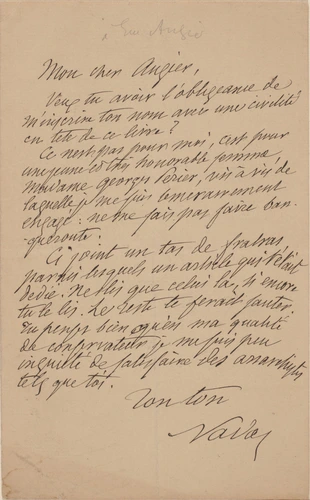 à Emile Augier
Mon cher Augier,
Veux tu avoir l'obligeance de
m'inscrire ton nom avec une civilité
en tête de ce livre?
Ce n'est pas pour moi, c'est pour
une jeune et très honorable femme
Madame Georges vis à vis de
laquelle je me suis témérairement
engagé: ne me fais pas faire ban-
queroute.
Ci joint un tas de fratras
parmi lesquels un article qui t'était
dédié. Ne lis que celui là, si encore
tu le lis. Le reste te ferait sauter
du bien qu'en ma qualité
de conservateur je me suis peu
inquiété de satisfaire des anarchistes
tels que toi.
Ton ton